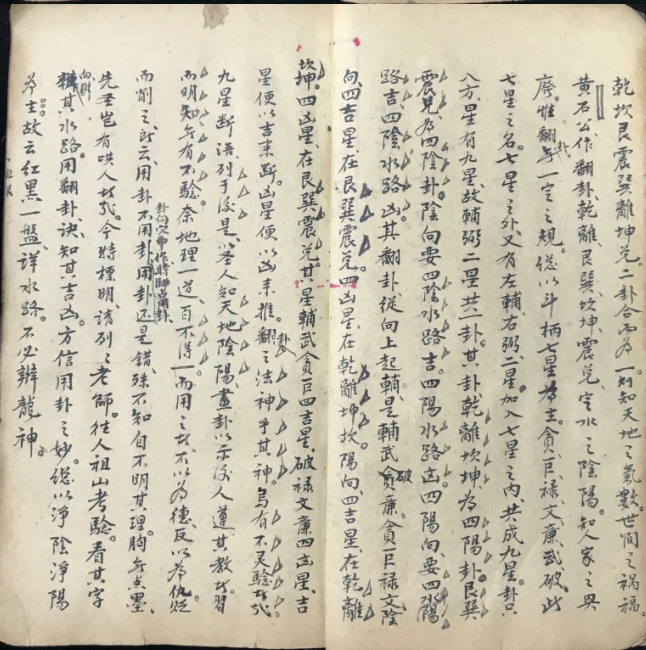 乾坎艮震巽離坤兌二卦合而為一則知天地之氣數世间之禍福。
黄石公作翻卦乾離艮巽坎坤震兌定水之陰陽知人家之興
廢。惟翻卦一定之規。總以斗柄七星為主貪巨禄文廉武破此
七星之名。七星之外又有左輔右弼二星加入七星之内共成九星。卦只
八方星有九星故輔弼二星共一卦。其卦乾離坎坤為四陽卦艮巽
震兌為四陰卦。陰向要四陰水路吉。四陽水路凶。四陽向要四水陽
路吉。四陰水路凶其翻卦從向上起輔是輔武破廉貪巨禄文陰
向四吉星在艮巽震兌四凶星在乾離坤坎陽向四吉星在乾離
坎坤。四凶星在艮巽震兌其星輔武貪巨四吉星破禄文廉四凶星吉
星便以吉来断凶星便以凶来推翻卦之法神乎其神。烏有不灵驗者哉
九星断语列于後是以畧人知天地陰陽畫卦以示後人遵其教者習
而明知無有不驗奈地理一道百不得一而用之者不以為德反以為仇貶
卦向穴中作時師占用卦
而削之就云用卦不用卦用卦还是錯殊不知自不明其理胸無点墨
先圣豈有哄人者哉。今特標明请列之老師往人祖山考驗。看其字
向辨其水路用翻卦诀知其吉凶方信用卦之妙。總以淨陰淨陽
為主故云红黑一盤詳水路不必辨龍神